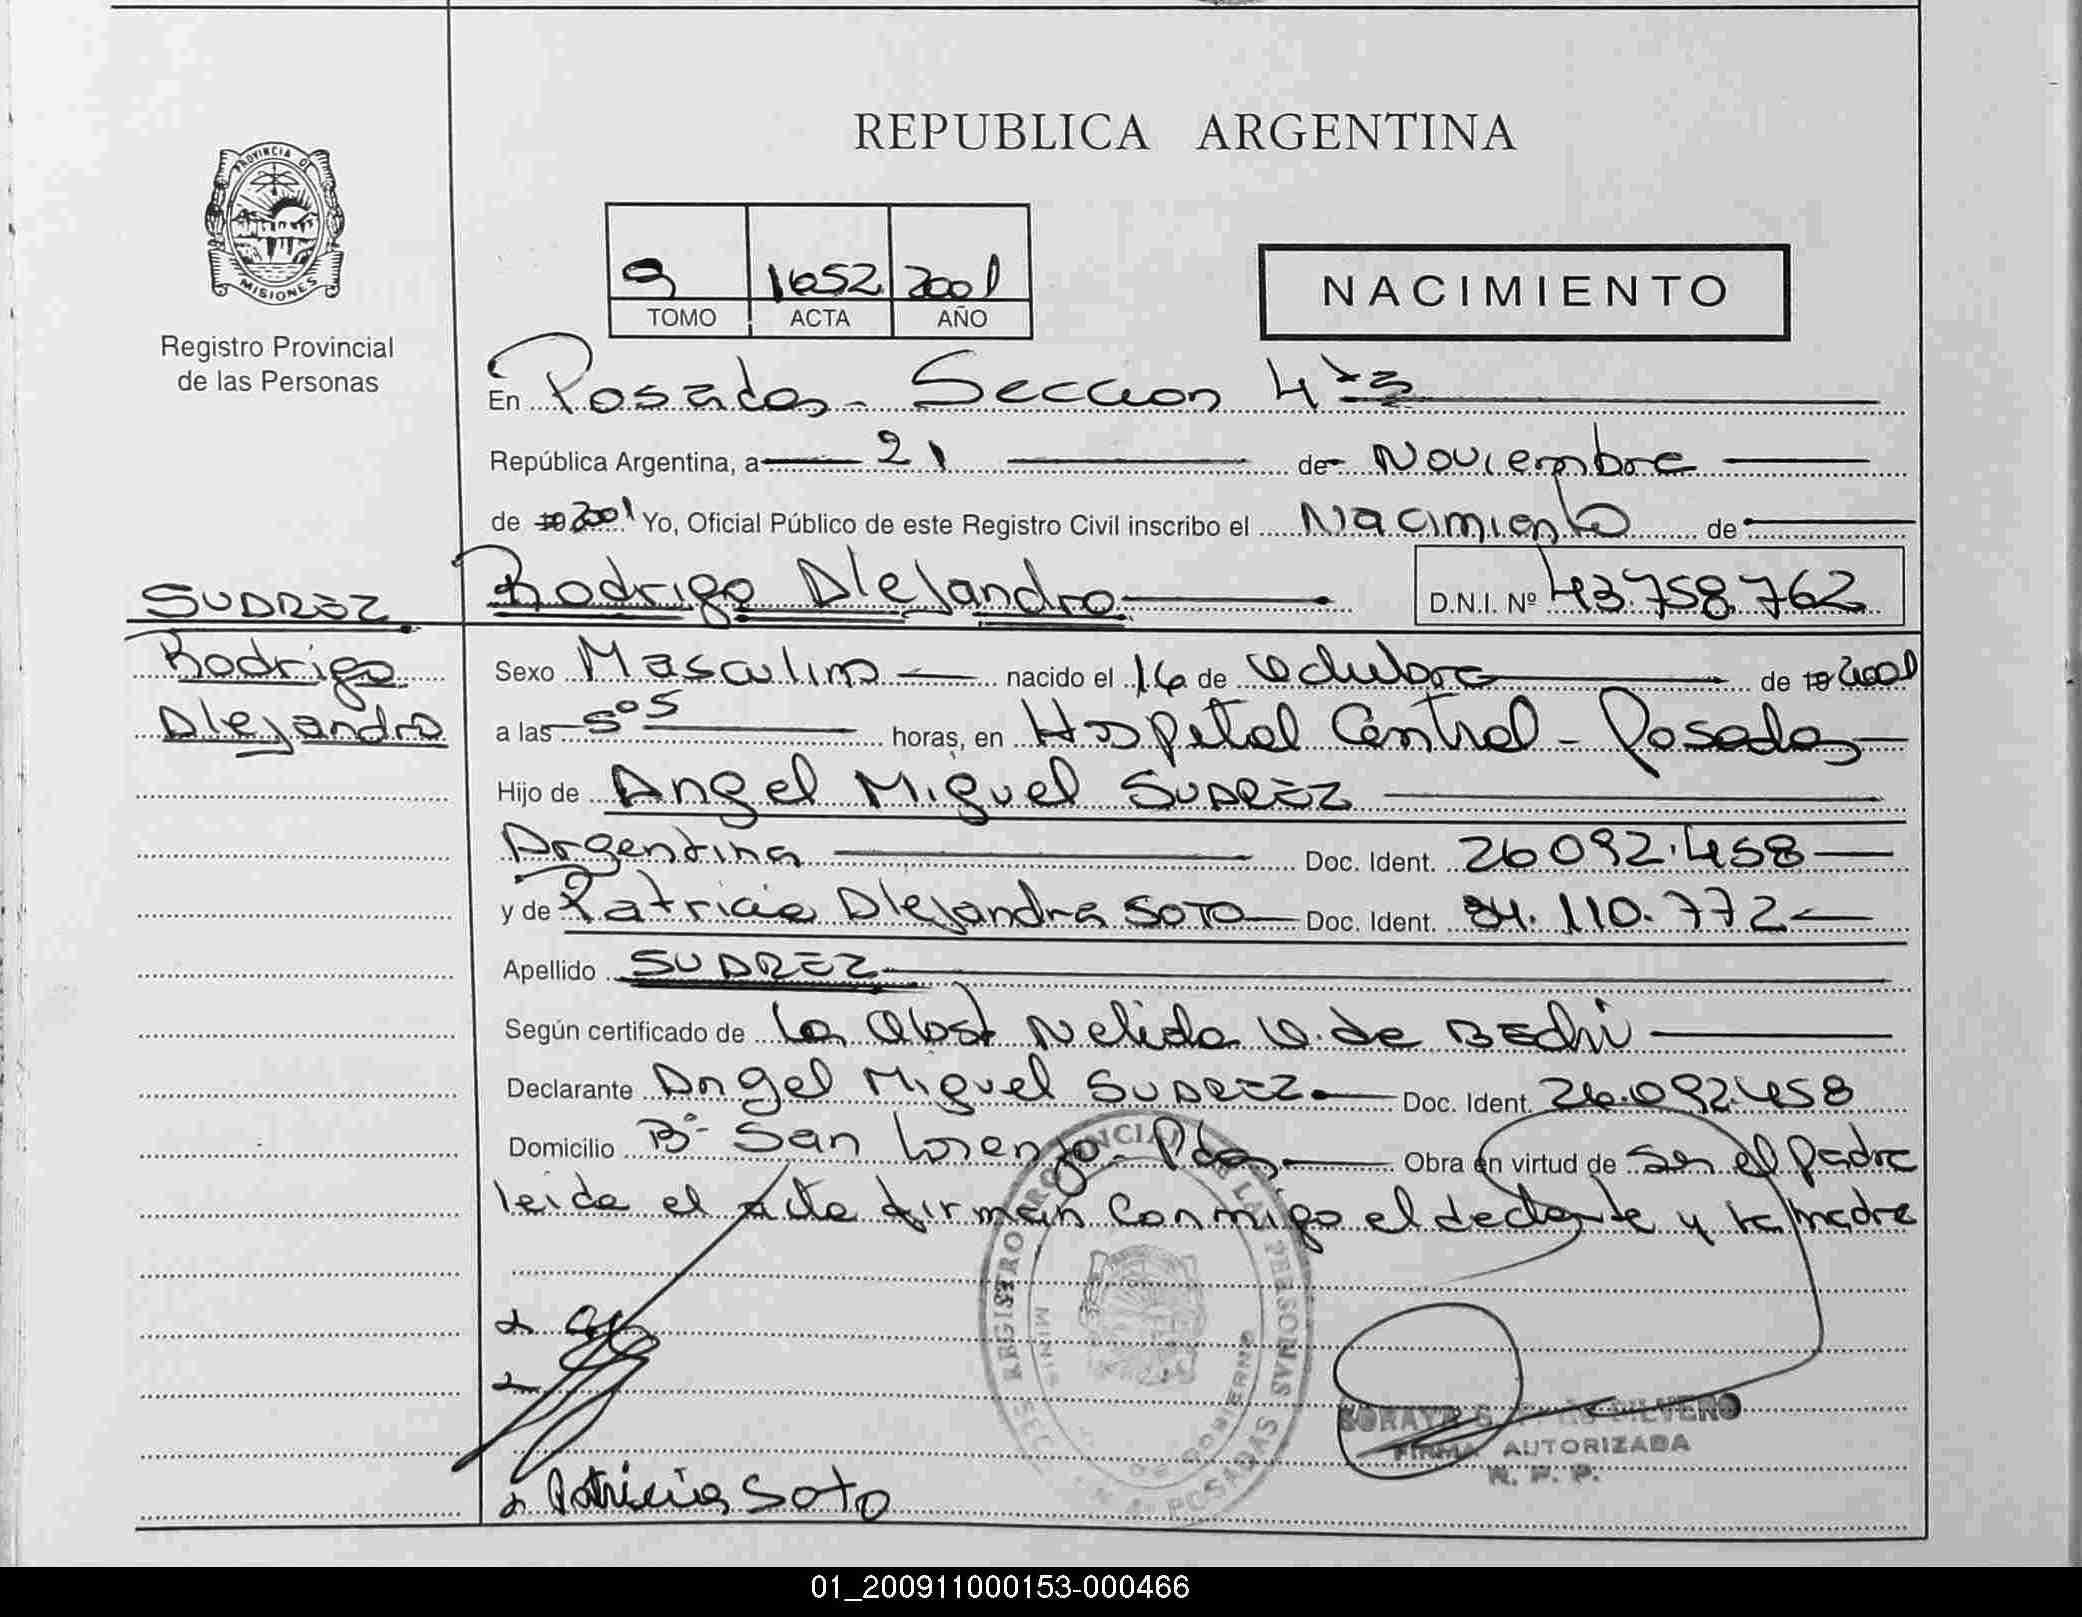 REPUBLICA ARGENTINA
PROVINCIA DE
MISIONES
Registro Provincial
de las Personas
9 1652 2001
TOMO ACTA AÑO
NACIMIENTO
En Posadas - Seccion 4ta
República Argentina, a 21 de Noviembre
de 2001 Yo, Oficial Público de este Registro Civil inscribo el Nacimiento de
SUAREZ Rodrigo Alejandro D.N.I. Nº 43.758.762
Rodrigo
Alejandro
Sexo Masculino nacido el 16 de Octubre de 2001
a las 5º5 horas, en Hospital Central - Posadas
Hijo de Angel Miguel SUAREZ
Argentina Doc. Ident. 26.092.458
y de Patricia Alejandra SOTO Doc. Ident. .110.772
Apellido SUAREZ
Según certificado de La Obst Nelida de
Declarante Angel Miguel SUAREZ Doc. Ident. 26.092.458
Domicilio Bº San Lorenzo - Pdas Obra en virtud de ser el padre
leida el acta firman conmigo el declarante y la madre
REGISTRO PROVINCIAL DE LAS PERSONAS
MINIS DE GOBIERNO
POSADAS
SORAYA G. SILVERO
FIRMA AUTORIZADA
R. P. P.
Patricia Soto
01_200911000153-000466